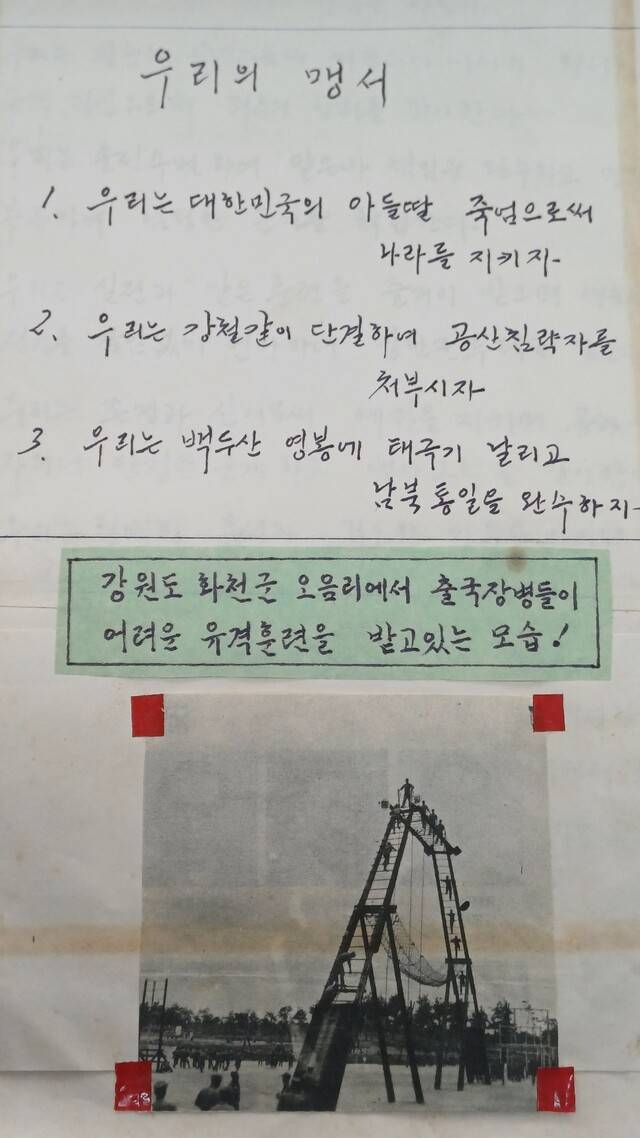 우리의 맹서
1. 우리는 대한민국의 아들딸 죽엄으로써
나라를 지키자
2. 우리는 강철같이 단결하여 공산침략자를
처부시자
3. 우리는 백두산 영봉에 태극기 날리고
남북통일을 완수하자
강원도 화천군 오음리에서 출국장병들이
어려운 유격훈련을 받고있는 모습!